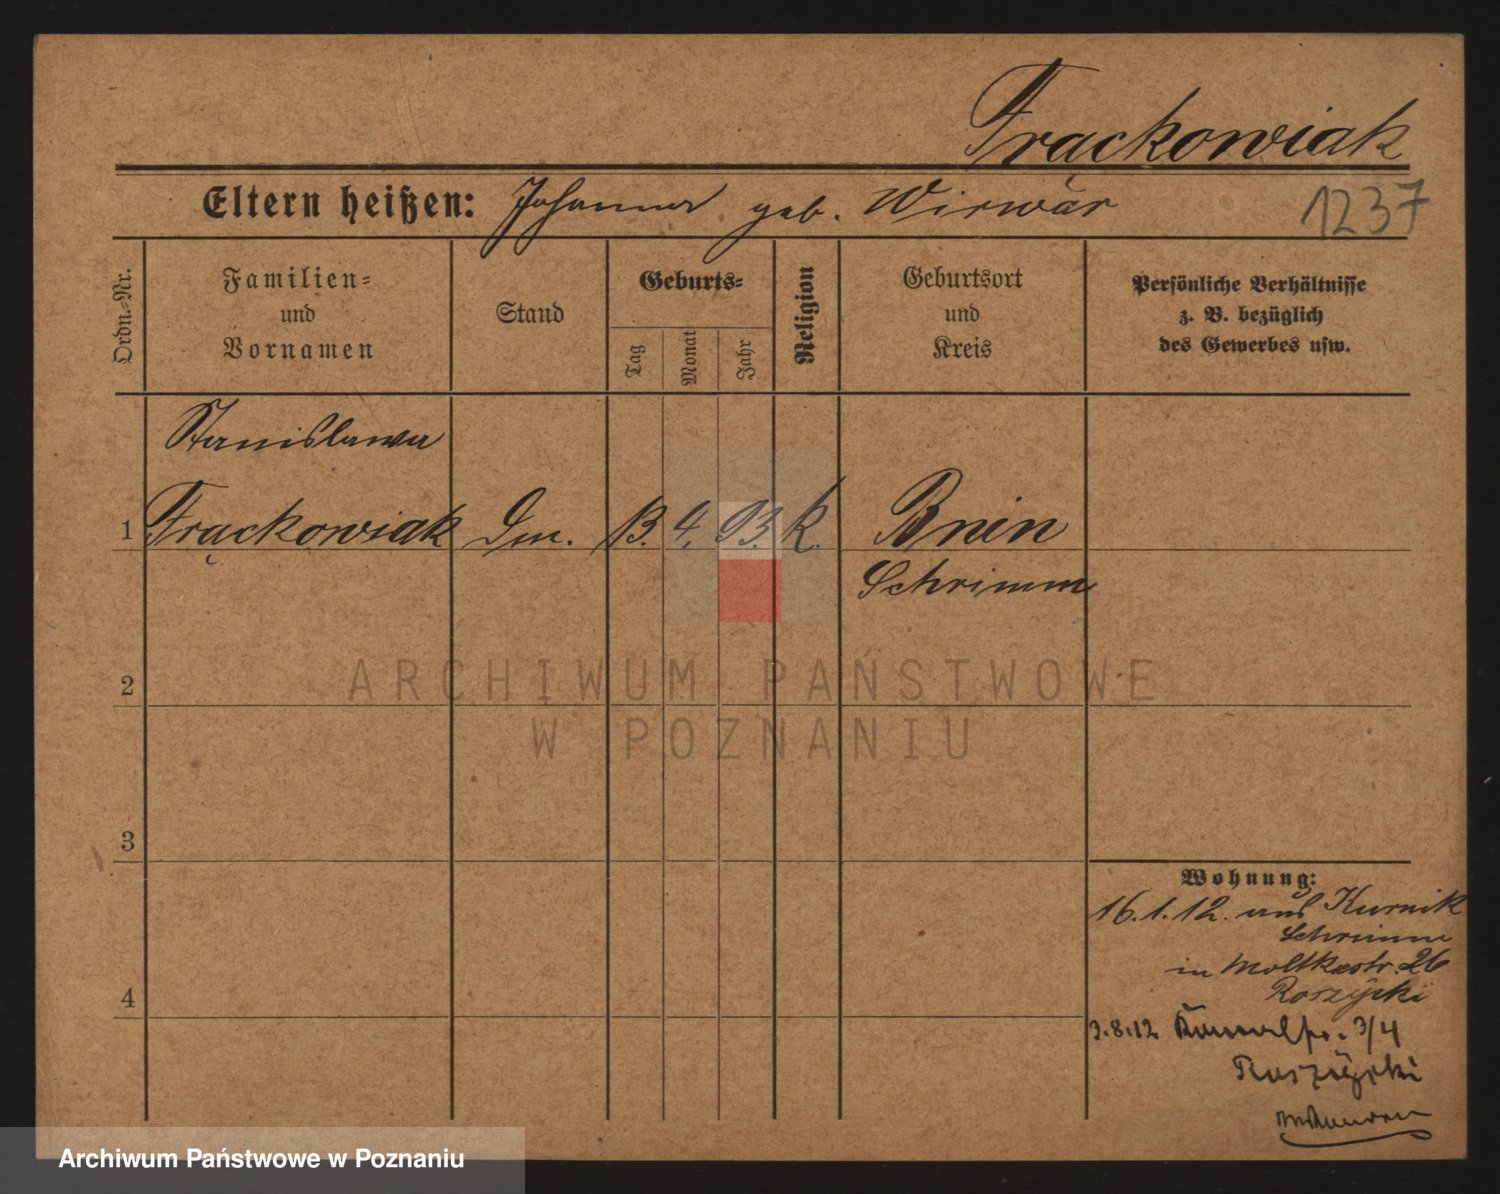 Frąckowiak
Eltern heißen: Johanna geb. Wirwar
1237
Ordn.-Nr.
Familien-
und
Vornamen
Stand
Geburts-
Tag
Monat
Jahr
Religion
Geburtsort
und
Kreis
Persönliche Verhältnisse
z. B. bezüglich
des Gewerbes usw.
Stanislawa
1 Frąckowiak Dm. 13. 4. 93. k. Bnin
Schrimm
2
ARCHIWUM PAŃSTWOWE
W POZNANIU
3
Wohnung:
16.1.12. aus Kurnik
Schrimm
in Moltkestr. 26
Roszycki
4
3.8.12 3/4
Roszycki
Archiwum Państwowe w Poznaniu